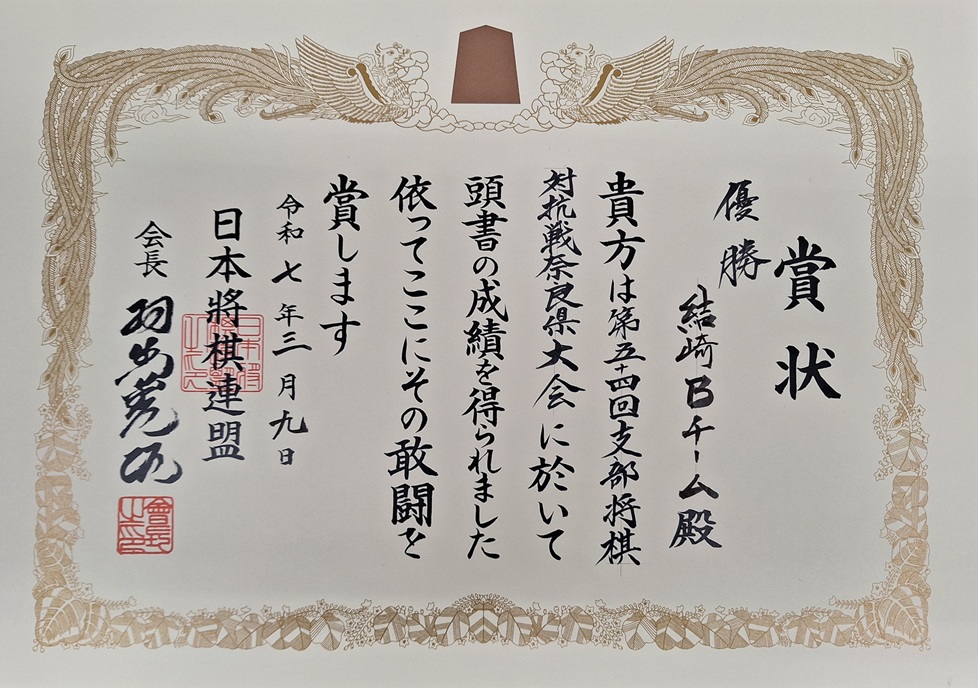 賞状
優勝
結崎Bチーム殿
貴方は第五十四回支部将棋
対抗戦奈良県大会に於いて
頭書の成績を得られました
依ってここにその敢闘を
賞します
令和七年三月九日
日本將棋連盟
会長 羽生善治
會長之印